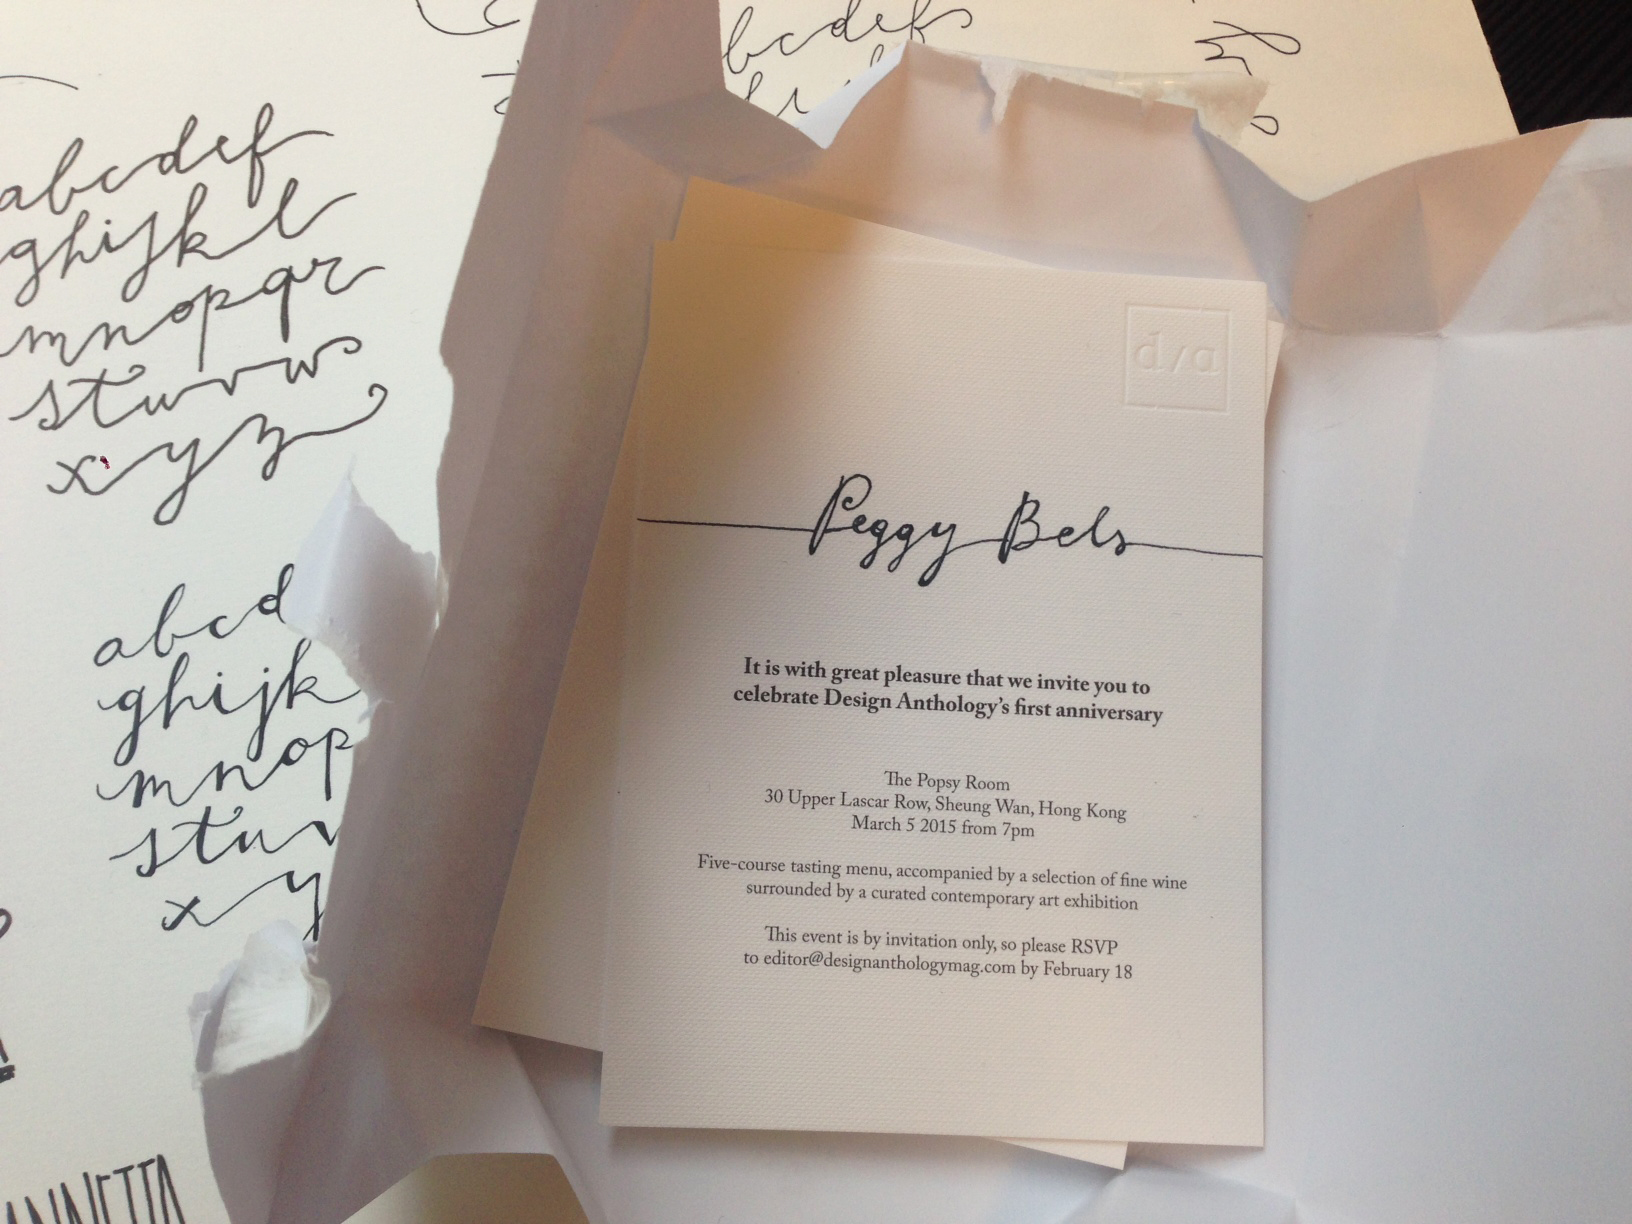 bcdef
abcdef
ghijkl
mnopqr
stuvw
xyz
abcd
ghijk
mnop
stuv
xy
d/a
Peggy Bels
It is with great pleasure that we invite you to
celebrate Design Anthology's first anniversary
The Popsy Room
30 Upper Lascar Row, Sheung Wan, Hong Kong
March 5 2015 from 7pm
Five-course tasting menu, accompanied by a selection of fine wine
surrounded by a curated contemporary art exhibition
This event is by invitation only, so please RSVP
to editor@designanthologymag.com by February 18